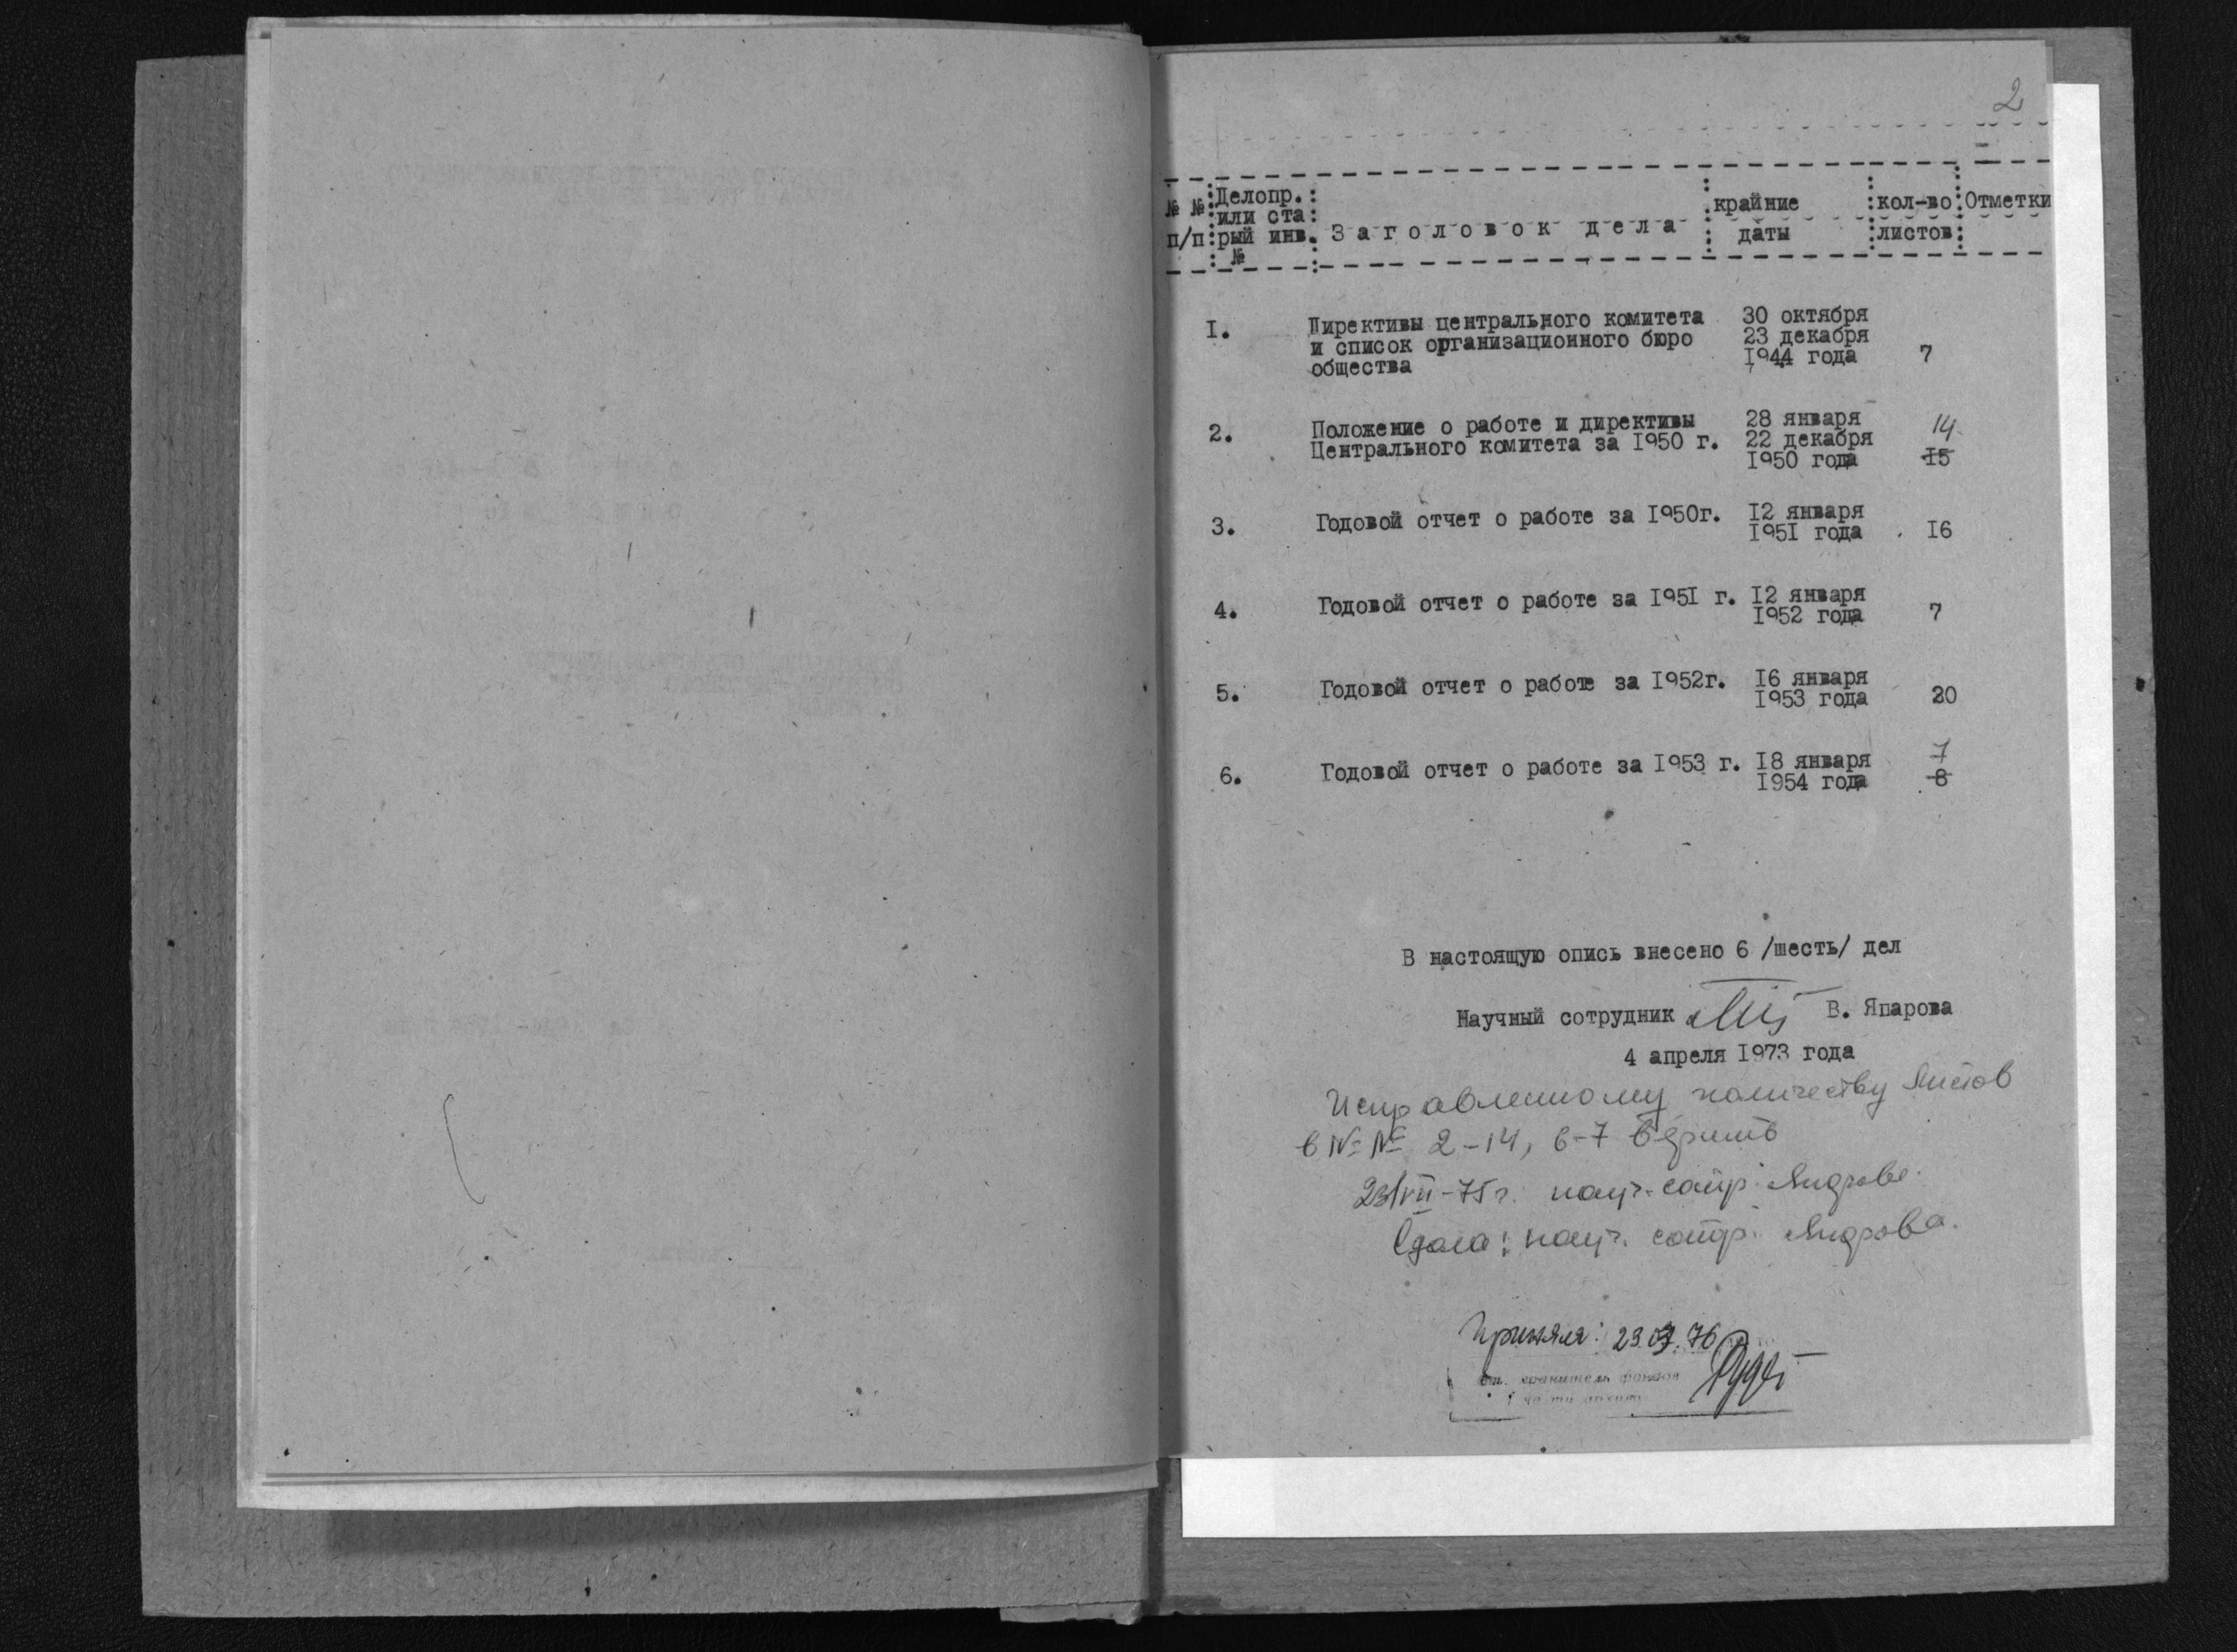 2
№ № Делопр. крайние кол-во Отметки
или ста
п/п рый инв. Заголовок дела даты листов
№
I. Директивы центрального комитета 30 октября
и список организационного бюро 23 декабря
общества I944 года 7
2. Положение о работе и директивы 28 января 14
Центрального комитета за I950 г. 22 декабря
I950 года I5
3. Годовой отчет о работе за I950г. I2 января
I95I года I6
4. Годовой отчет о работе за I95I г. I2 января
I952 года 7
5. Годовой отчет о работе за I952г. I6 января
I953 года 20
6. Годовой отчет о работе за I953 г. I8 января 7
I954 года 8
В настоящую опись внесено 6 /шесть/ дел
Научный сотрудник В. Япарова
4 апреля I973 года
Исправленному количеству листов
в №№ 2-14, 6-7 верить
23/VII-75г. науч. сотр.
Сдала: науч. сотр.
Приняла: 29.03.76
хранитель фондов